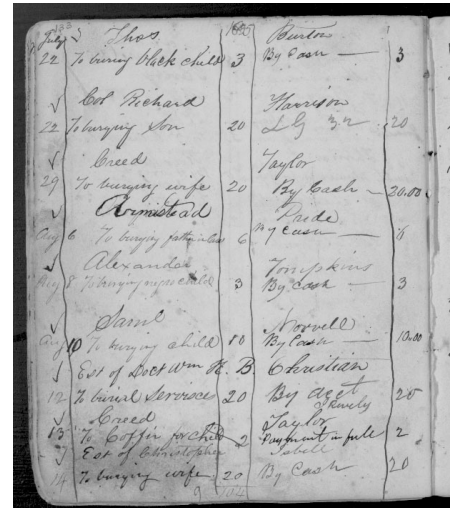 July Thos Burton
22 To buring black child 3 By Cash 3
Col Richard Harrison
22 To burying Son 20 20
Creed Taylor
29 To burying wife 20 By Cash 20.00
Armistead Pride
Aug 6 To burying father inlaw 6 By Cash 6
Alexander Tompkins
Aug 8 To burying negro child 3 By Cash 3
Saml Norvell
Aug 10 To burying child 10 By Cash 10.00
Est of Doct Wm H. B. Christian
12 To buriel Servises 20 By acct 20
Creed Taylor
13 To Coffin for child 2 Payment in full 2
Est of Christopher Isbell
14 To burying wife 20 By Cash 20
104